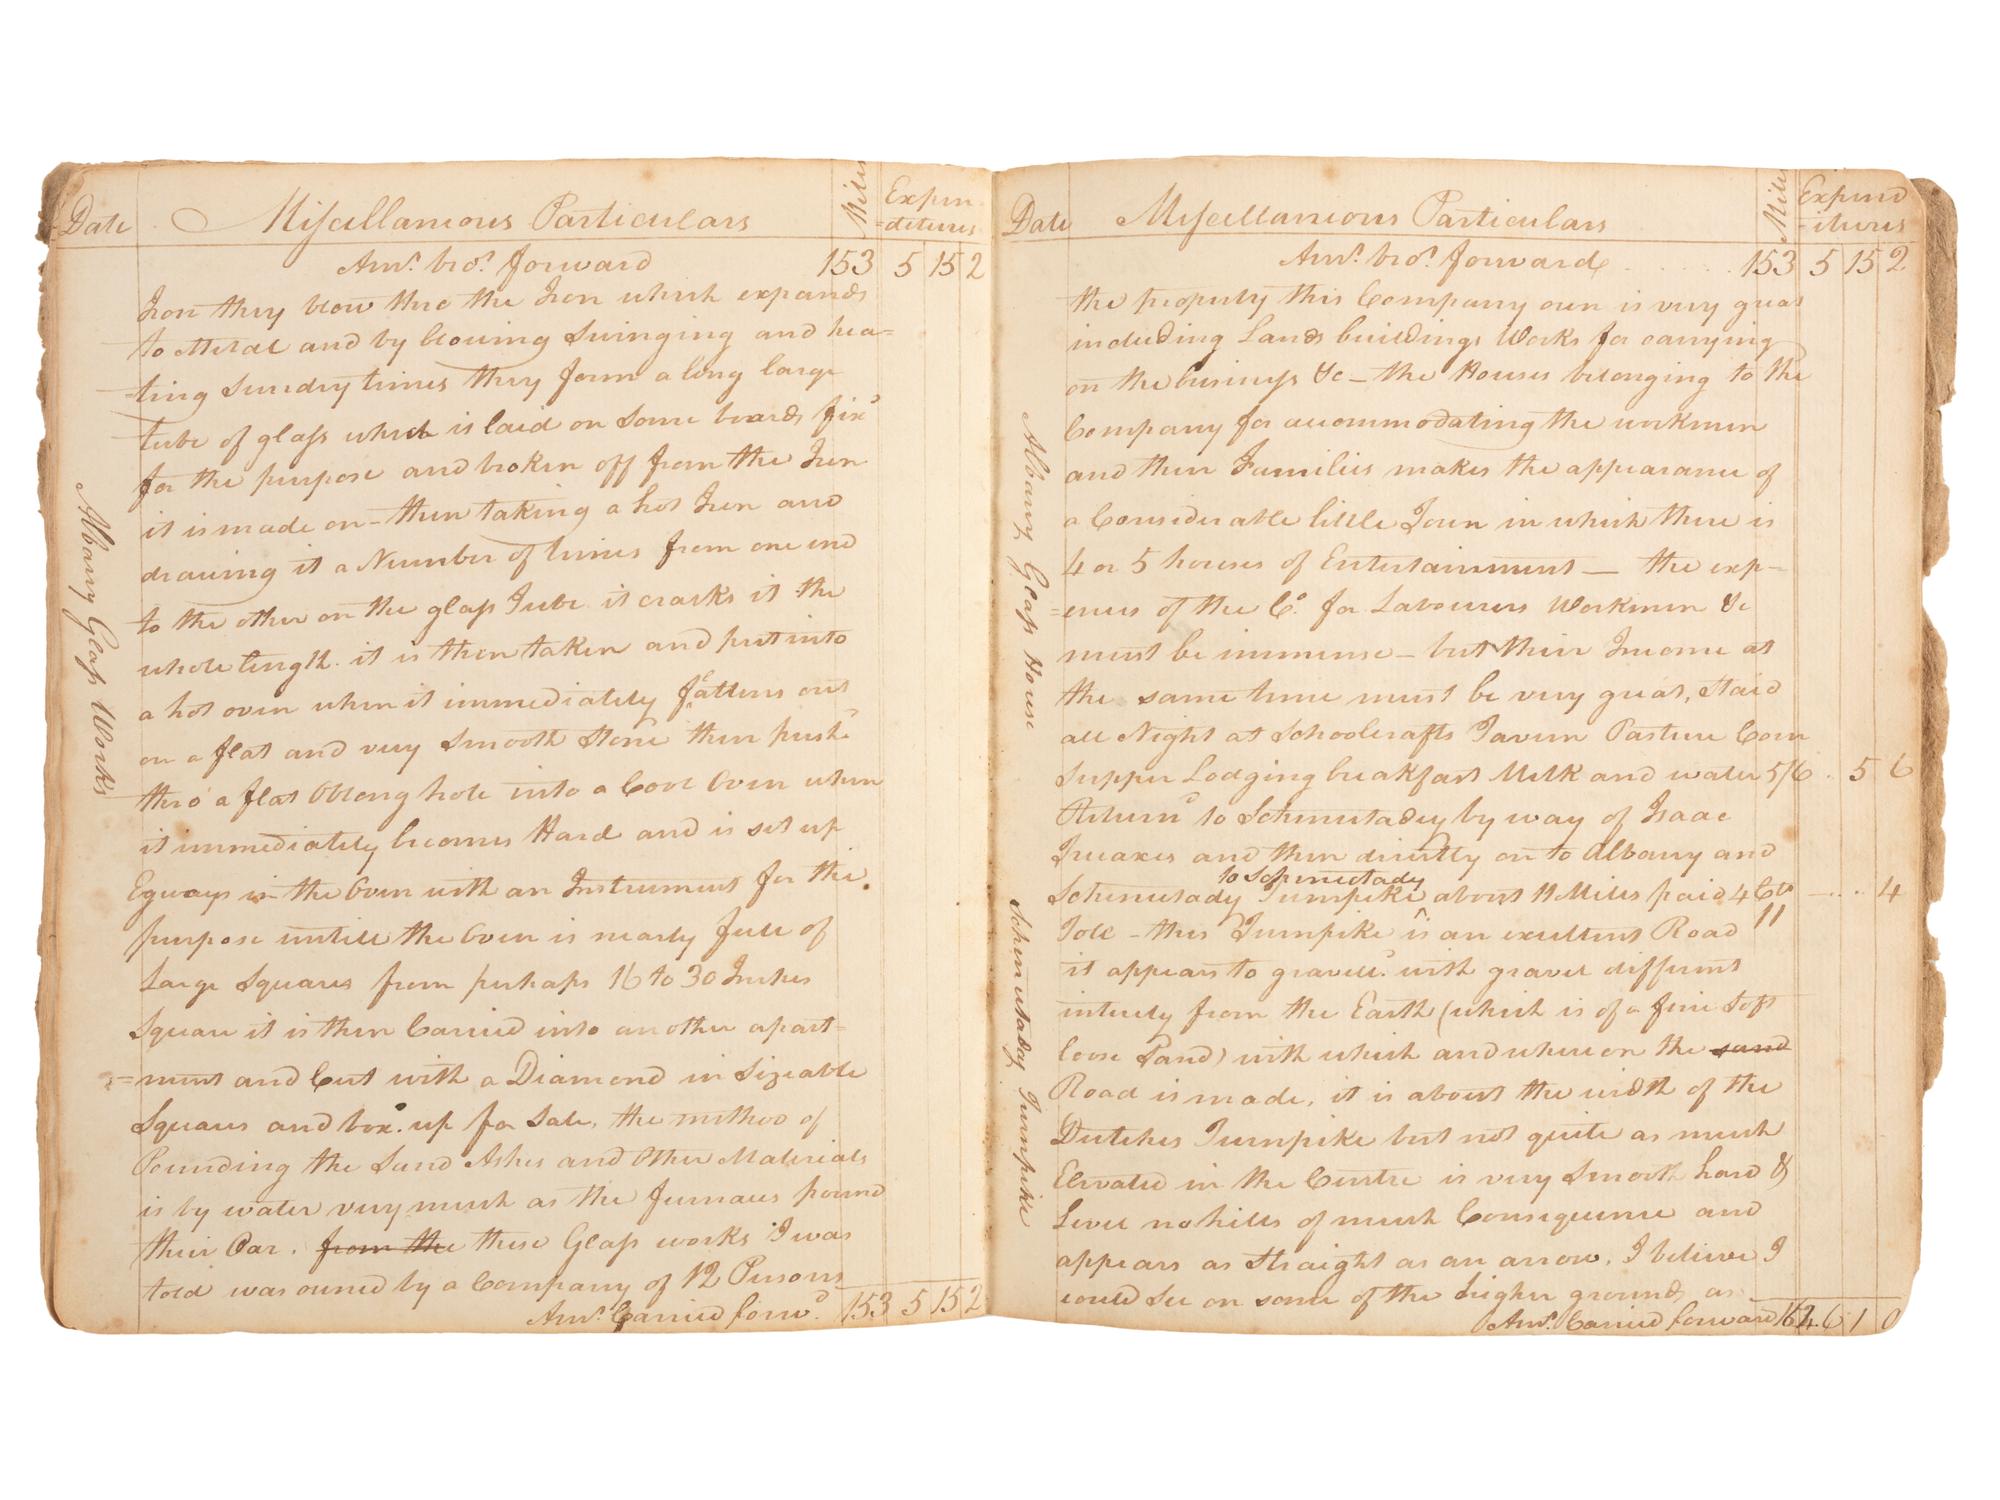 Date Miscellaneous Particulars Miles Expen
=ditures
Amt. bro.t forward 153 5 15 2
Iron they blow thro the Iron which expands
to Metal and by blowing Swinging and hea=
=ting Sundry times they form a long large
tube of glass which is laid on some boards fix.d
for the purpose and broken off from the Iron
it is made on - then taking a hot Iron and
drawing it a Number of times from one end
to the other on the glass Tube it cracks it the
whole length. it is then taken and put into
a hot oven when it immediately flattens out
on a flat and very smooth Stone then push.d
thro' a flat Oblong hole into a Cool Oven when
it immediately becomes Hard and is set up
Egways in the Oven with an Instrument for the
purpose untill the Oven is nearly full of
Large Squares from perhaps 16 to 30 Inches
Square it is then Carried into another apart=
=ment and Cut with a Diamond in Sizeable
Squares and box.d up for Sale, the method of
Pounding the Sand Ashes and Other Materials
is by water very much as the furnaces pound
their Oar. from the these Glass works I was
told was owned by a Company of 12 Persons
Amt. Carried forw.d 153 5 15 2
Albany Glass Works
Date Miscellaneous Particulars Miles Expend
-itures
Amt. bro.t forward 153 5 15 2
the property this Company own is very great
including Lands buildings Works for carrying
on the business &c - the Houses belonging to the
Company for accommodating the workmen
and their Families makes the appearance of
a Considerable little Town in which there is
4 or 5 houses of Entertainment — the exp-
=ences of the Co. for Labourers Workmen &c
must be immense - but their Income at
the same time must be very great, Staid
all Night at Schoolcrafts Tavern Pasture Corn
Supper Lodging breakfast Milk and water 5/6 5 6
Return.d to Schenectaday by way of Isaac
Truaxes and then directly on to Albany and
to Schenectady
Schenectady Turnpike about 11 Miles paid 4 Cts 4
Tole - this Turnpike ^ is an excellent Road 11
it appears to gravell.d with gravel different
intirely from the Earth (which is of a fine Soft
loose Sand) with which and where on the sand
Road is made, it is about the width of the
Dutches Turnpike but not quite as much
Elevated in the Centre is very Smooth hard &
Level no hills of much Consequence and
appears as Straight as an arrow, I believe I
could See on some of the higher grounds as
Amt. Carried forward 164 6 1 0
Albany Glass House
Schenectaday Turnpike